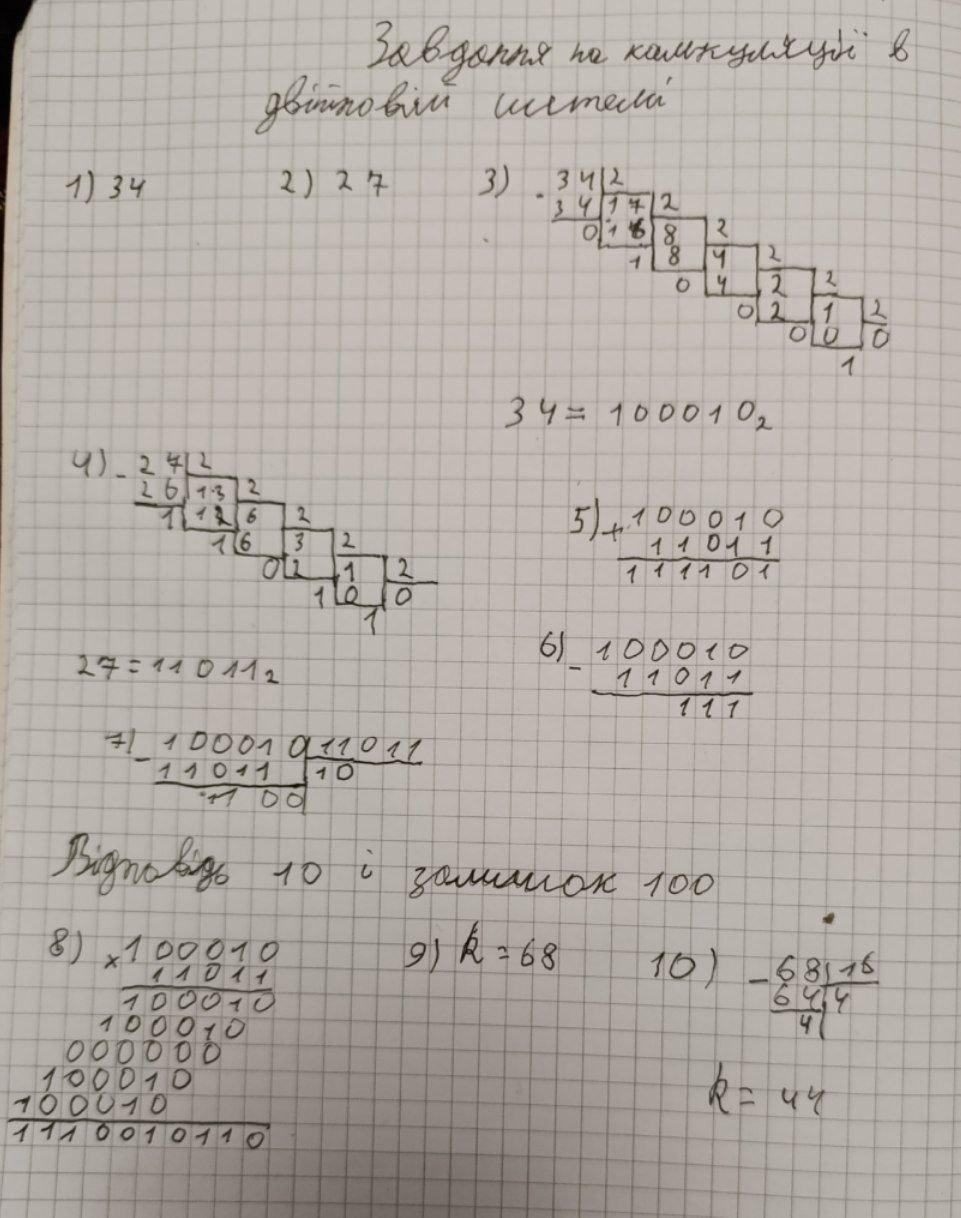 Завдання на калькуляції в
двійковій системі
1) 34 2) 27 3) - 34 2
34 17 2
0 16 8 2
1 8 4 2
0 4 2 2
0 2 1 2
0 0 0
1
34 = 100010₂
4) - 27 2
26 13 2
1 12 6 2
1 6 3 2
0 2 1 2
1 0 0
1
27 = 11011₂
5) + 100010
11011
111101
6) - 100010
11011
111
7) - 100010 11011
11011 10
100
Відповідь 10 і залишок 100
8) × 100010
11011
100010
100010
000000
100010
100010
1110010110
9) k = 68
10) - 68 16
64 4
4
k = 44